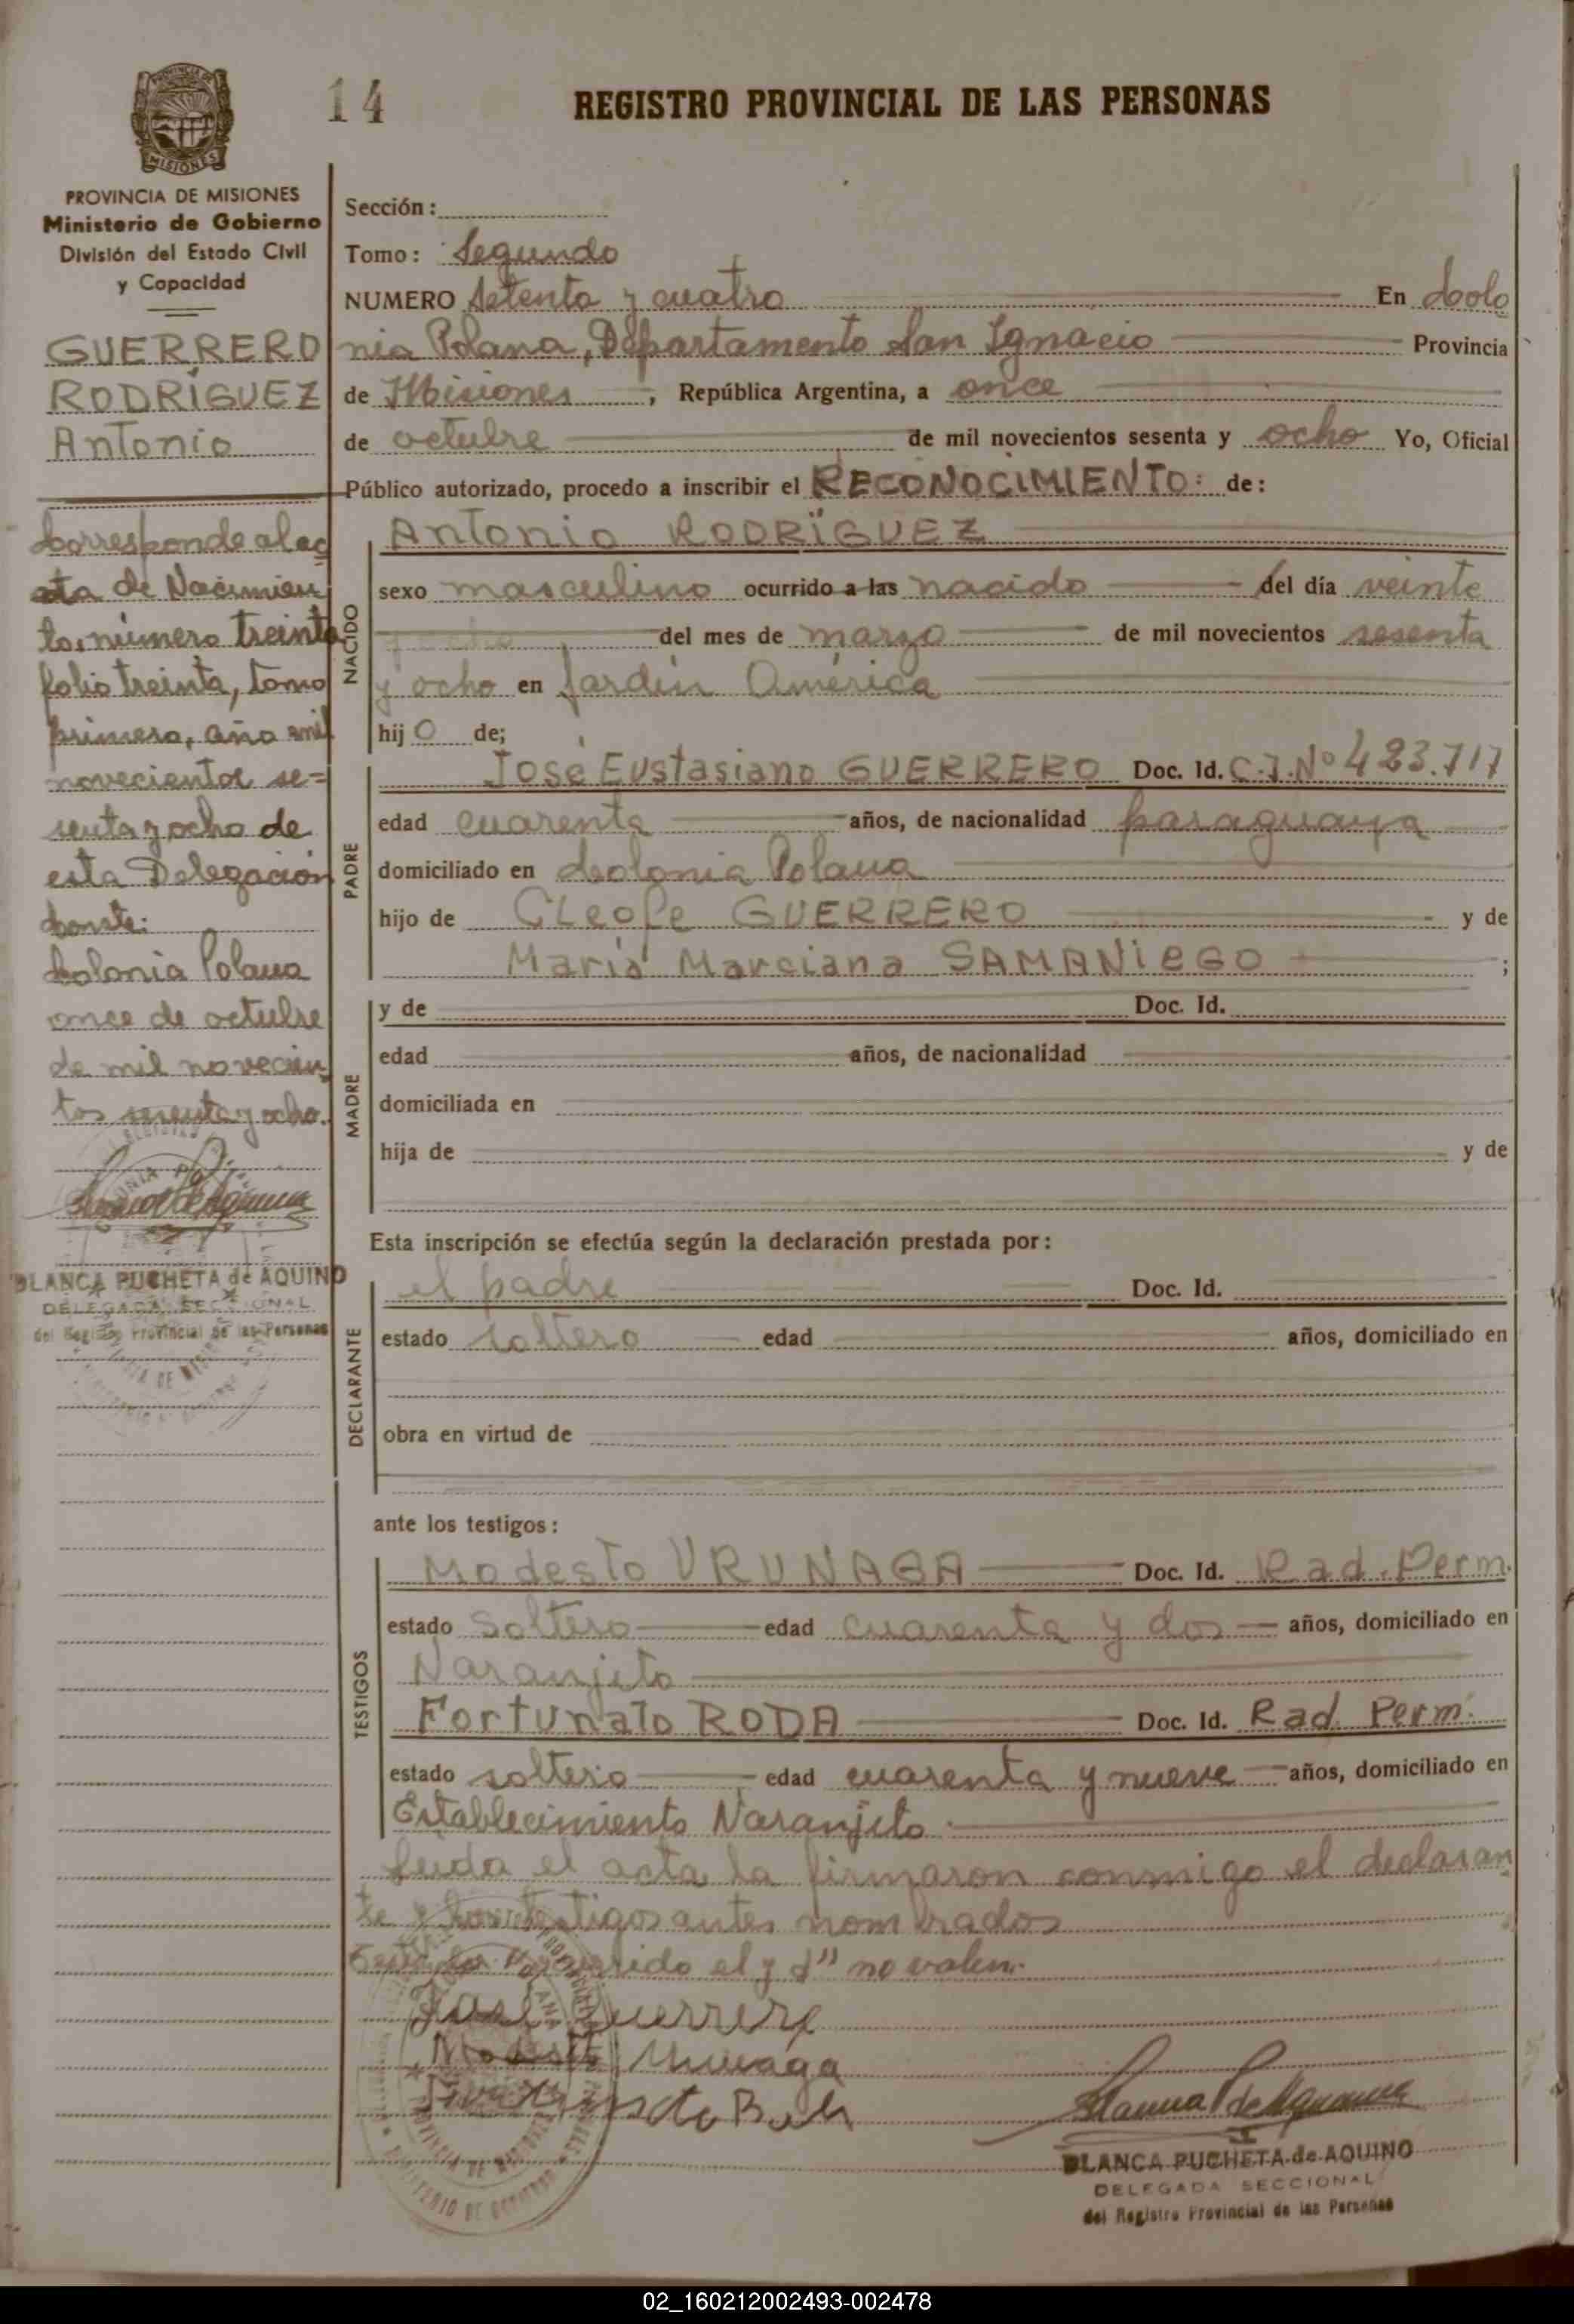 14
REGISTRO PROVINCIAL DE LAS PERSONAS
PROVINCIA DE MISIONES
Ministerio de Gobierno
División del Estado Civil
y Capacidad
GUERRERO
RODRÍGUEZ
Antonio
Corresponde al ac
ta de Nacimien
to, número treinta
folio treinta, tomo
primero, año mil
novecientos se=
senta y ocho de
esta Delegación
Conste:
Colonia Polana
once de octubre
de mil novecien
tos sesenta y ocho.
BLANCA PUCHETA de AQUINO
DELEGADA SECCIONAL
del Registro Provincial de las Personas
Sección:
Tomo: Segundo
NUMERO Setenta y cuatro En Colo
nia Polana, Departamento San Ignacio Provincia
de Misiones, República Argentina, a once
de octubre de mil novecientos sesenta y ocho Yo, Oficial
Público autorizado, procedo a inscribir el RECONOCIMIENTO: de:
NACIDO
Antonio RODRÍGUEZ
sexo masculino ocurrido a las nacido del día veinte
y ocho del mes de marzo de mil novecientos sesenta
y ocho en Jardín América
hijo de;
PADRE
José Eustasiano GUERRERO Doc. Id. C.I. Nº 423.717
edad cuarenta años, de nacionalidad paraguaya
domiciliado en Colonia Polana
hijo de Cleofe GUERRERO y de
María Marciana SAMANIEGO ;
MADRE
y de Doc. Id.
edad años, de nacionalidad
domiciliada en
hija de y de
Esta inscripción se efectúa según la declaración prestada por:
DECLARANTE
el padre Doc. Id.
estado soltero edad años, domiciliado en
obra en virtud de
ante los testigos:
TESTIGOS
Modesto URUNAGA Doc. Id. Rad. Perm.
estado soltero edad cuarenta y dos años, domiciliado en
Naranjito
Fortunato RODA Doc. Id. Rad. Perm.
estado soltero edad cuarenta y nueve años, domiciliado en
Establecimiento Naranjito
Leida el acta la firmaron conmigo el declaran
te y los testigos antes nombrados
el y d" no valen.
José Guerrero
Modesto Urunaga
BLANCA PUCHETA de AQUINO
DELEGADA SECCIONAL
del Registro Provincial de las Personas
02_160212002493-002478